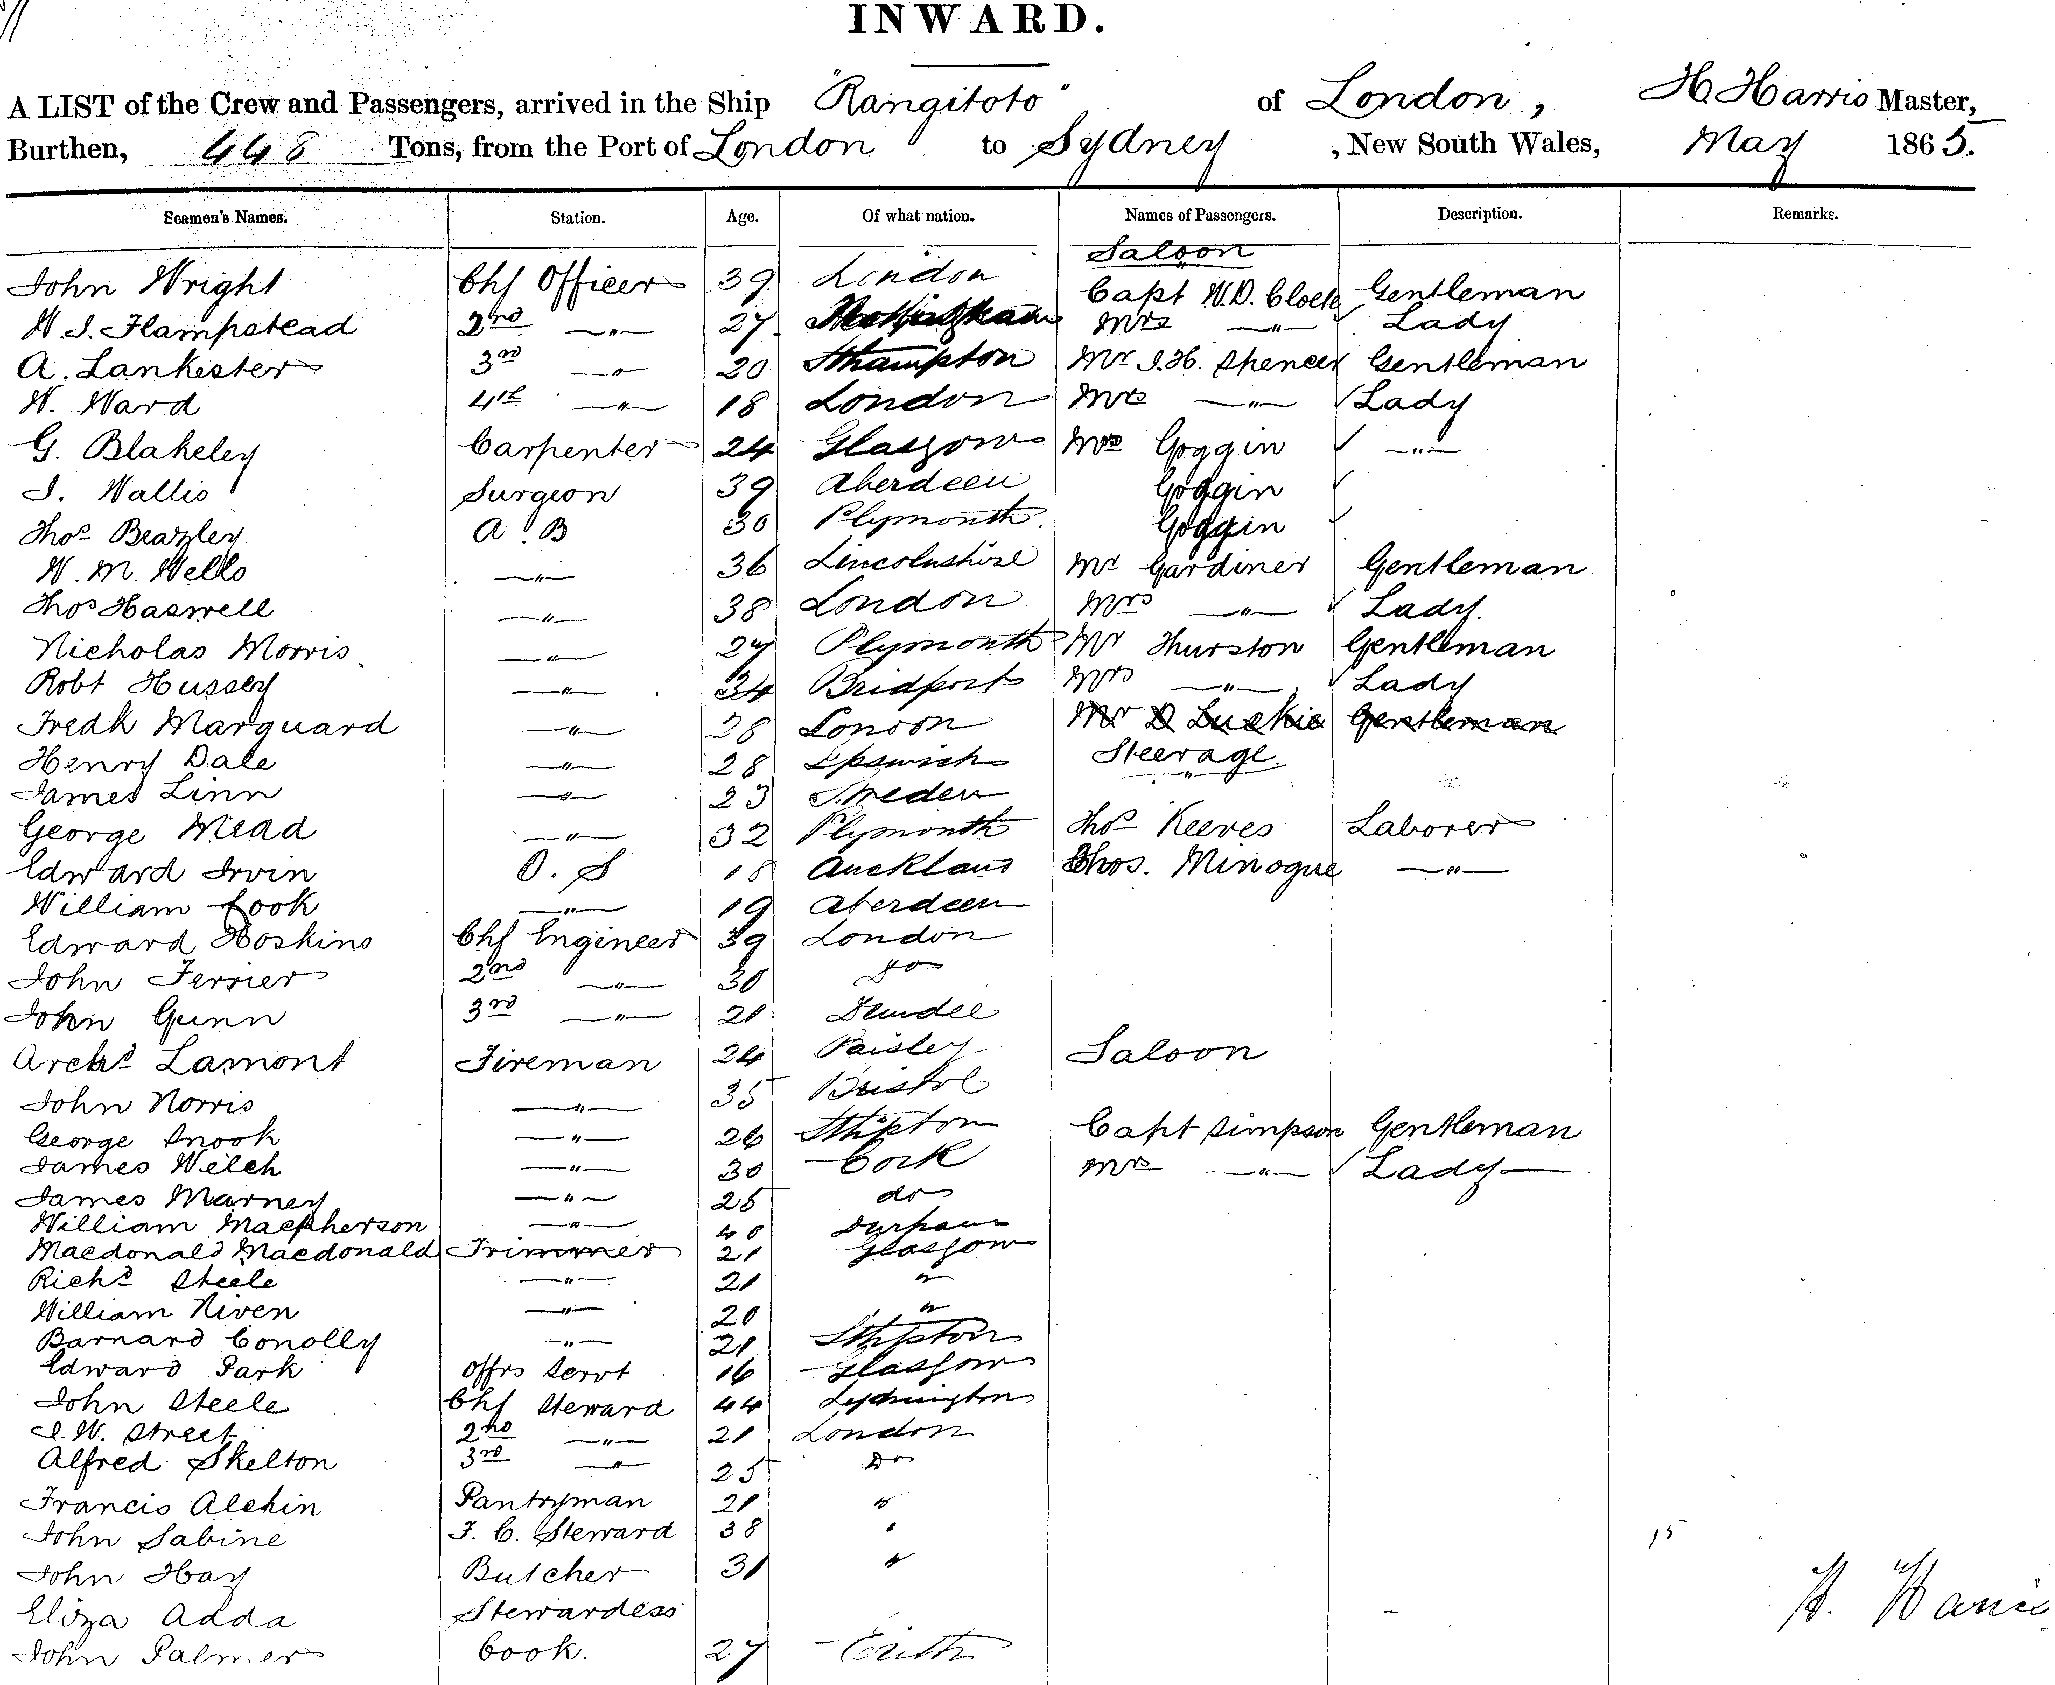 INWARD.
A LIST of the Crew and Passengers, arrived in the Ship "Rangitoto" of London, H Harris Master,
Burthen, 448 Tons, from the Port of London to Sydney, New South Wales, May 1865.
Seamen's Names. Station. Age. Of what nation. Names of Passengers. Description. Remarks.
Saloon
John Wright Chf Officer 39 London Capt W.D. Cloete Gentleman
W. J. Hampstead 2nd —"— 27 Mrs —"— Lady
A. Lankester 3rd —"— 20 Sthampton Mr J.H. Spencer Gentleman
W. Ward 4th —"— 18 London Mrs —"— Lady
G. Blakeley Carpenter 24 Glasgow Mrs Goggin —"—
J. Wallis Surgeon 39 Aberdeen Goggin
Thos Beazley A B 30 Plymouth Goggin
W. M. Wells —"— 36 Lincolnshire Mr Gardiner Gentleman
Thos Haswell —"— 38 London Mrs —"— Lady
Nicholas Morris —"— 27 Plymouth Mr Thurston Gentleman
Robt Hussey —"— 34 Bridport Mrs —"— Lady
Fredk Marquard —"— 28 London Mr D Luckie Gentleman
Henry Dale —"— 28 Ipswich Steerage
James Linn —"— 23 Sweden
George Mead —"— 32 Plymouth Thos Keeves Laborer
Edward Irvin O. S 18 Auckland Thos. Minogue —"—
William Cook —"— 19 Aberdeen
Edward Hoskins Chf Engineer 39 London
John Ferrier 2nd —"— 30 do
John Gunn 3rd —"— 21 Dundee
Archd Lamont Fireman 24 Paisley Saloon
John Norris —"— 35 Bristol
George Snook —"— 26 Sthpton Capt Simpson Gentleman
James Welch —"— 30 Cork Mrs —"— Lady
James Marney —"— 25 do
William Macpherson —"— 40 Durham
Macdonald Macdonald Trimmer 21 Glasgow
Richd Steele —"— 21 "
William Niven —"— 20 "
Barnard Conolly —"— 21 Sthpton
Edward Park Offrs Servt 16 Glasgow
John Steele Chf Steward 44 Lymington
J. W. Street 2nd —"— 21 London
Alfred Skelton 3rd —"— 25 Do
Francis Alchin Pantryman 21 "
John Sabine F. C. Steward 38 "
15
John Hay Butcher 31 "
H. Harris
Eliza Adda Stewardess
John Palmer Cook. 27 Erith